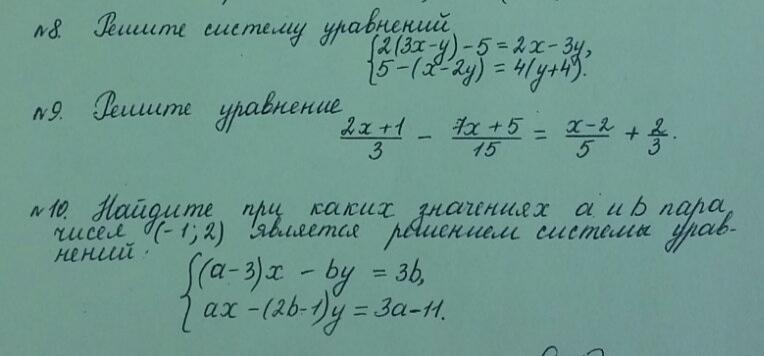 №8. Решите систему уравнений
{2(3x-y)-5=2x-3y,
{5-(x-2y)=4(y+4).
№9. Решите уравнение
(2x+1)/3 - (7x+5)/15 = (x-2)/5 + 2/3.
№10. Найдите при каких значениях a и b пара
чисел (-1; 2) является решением системы урав-
нений:
{(a-3)x - by = 3b,
{ax-(2b-1)y = 3a-11.